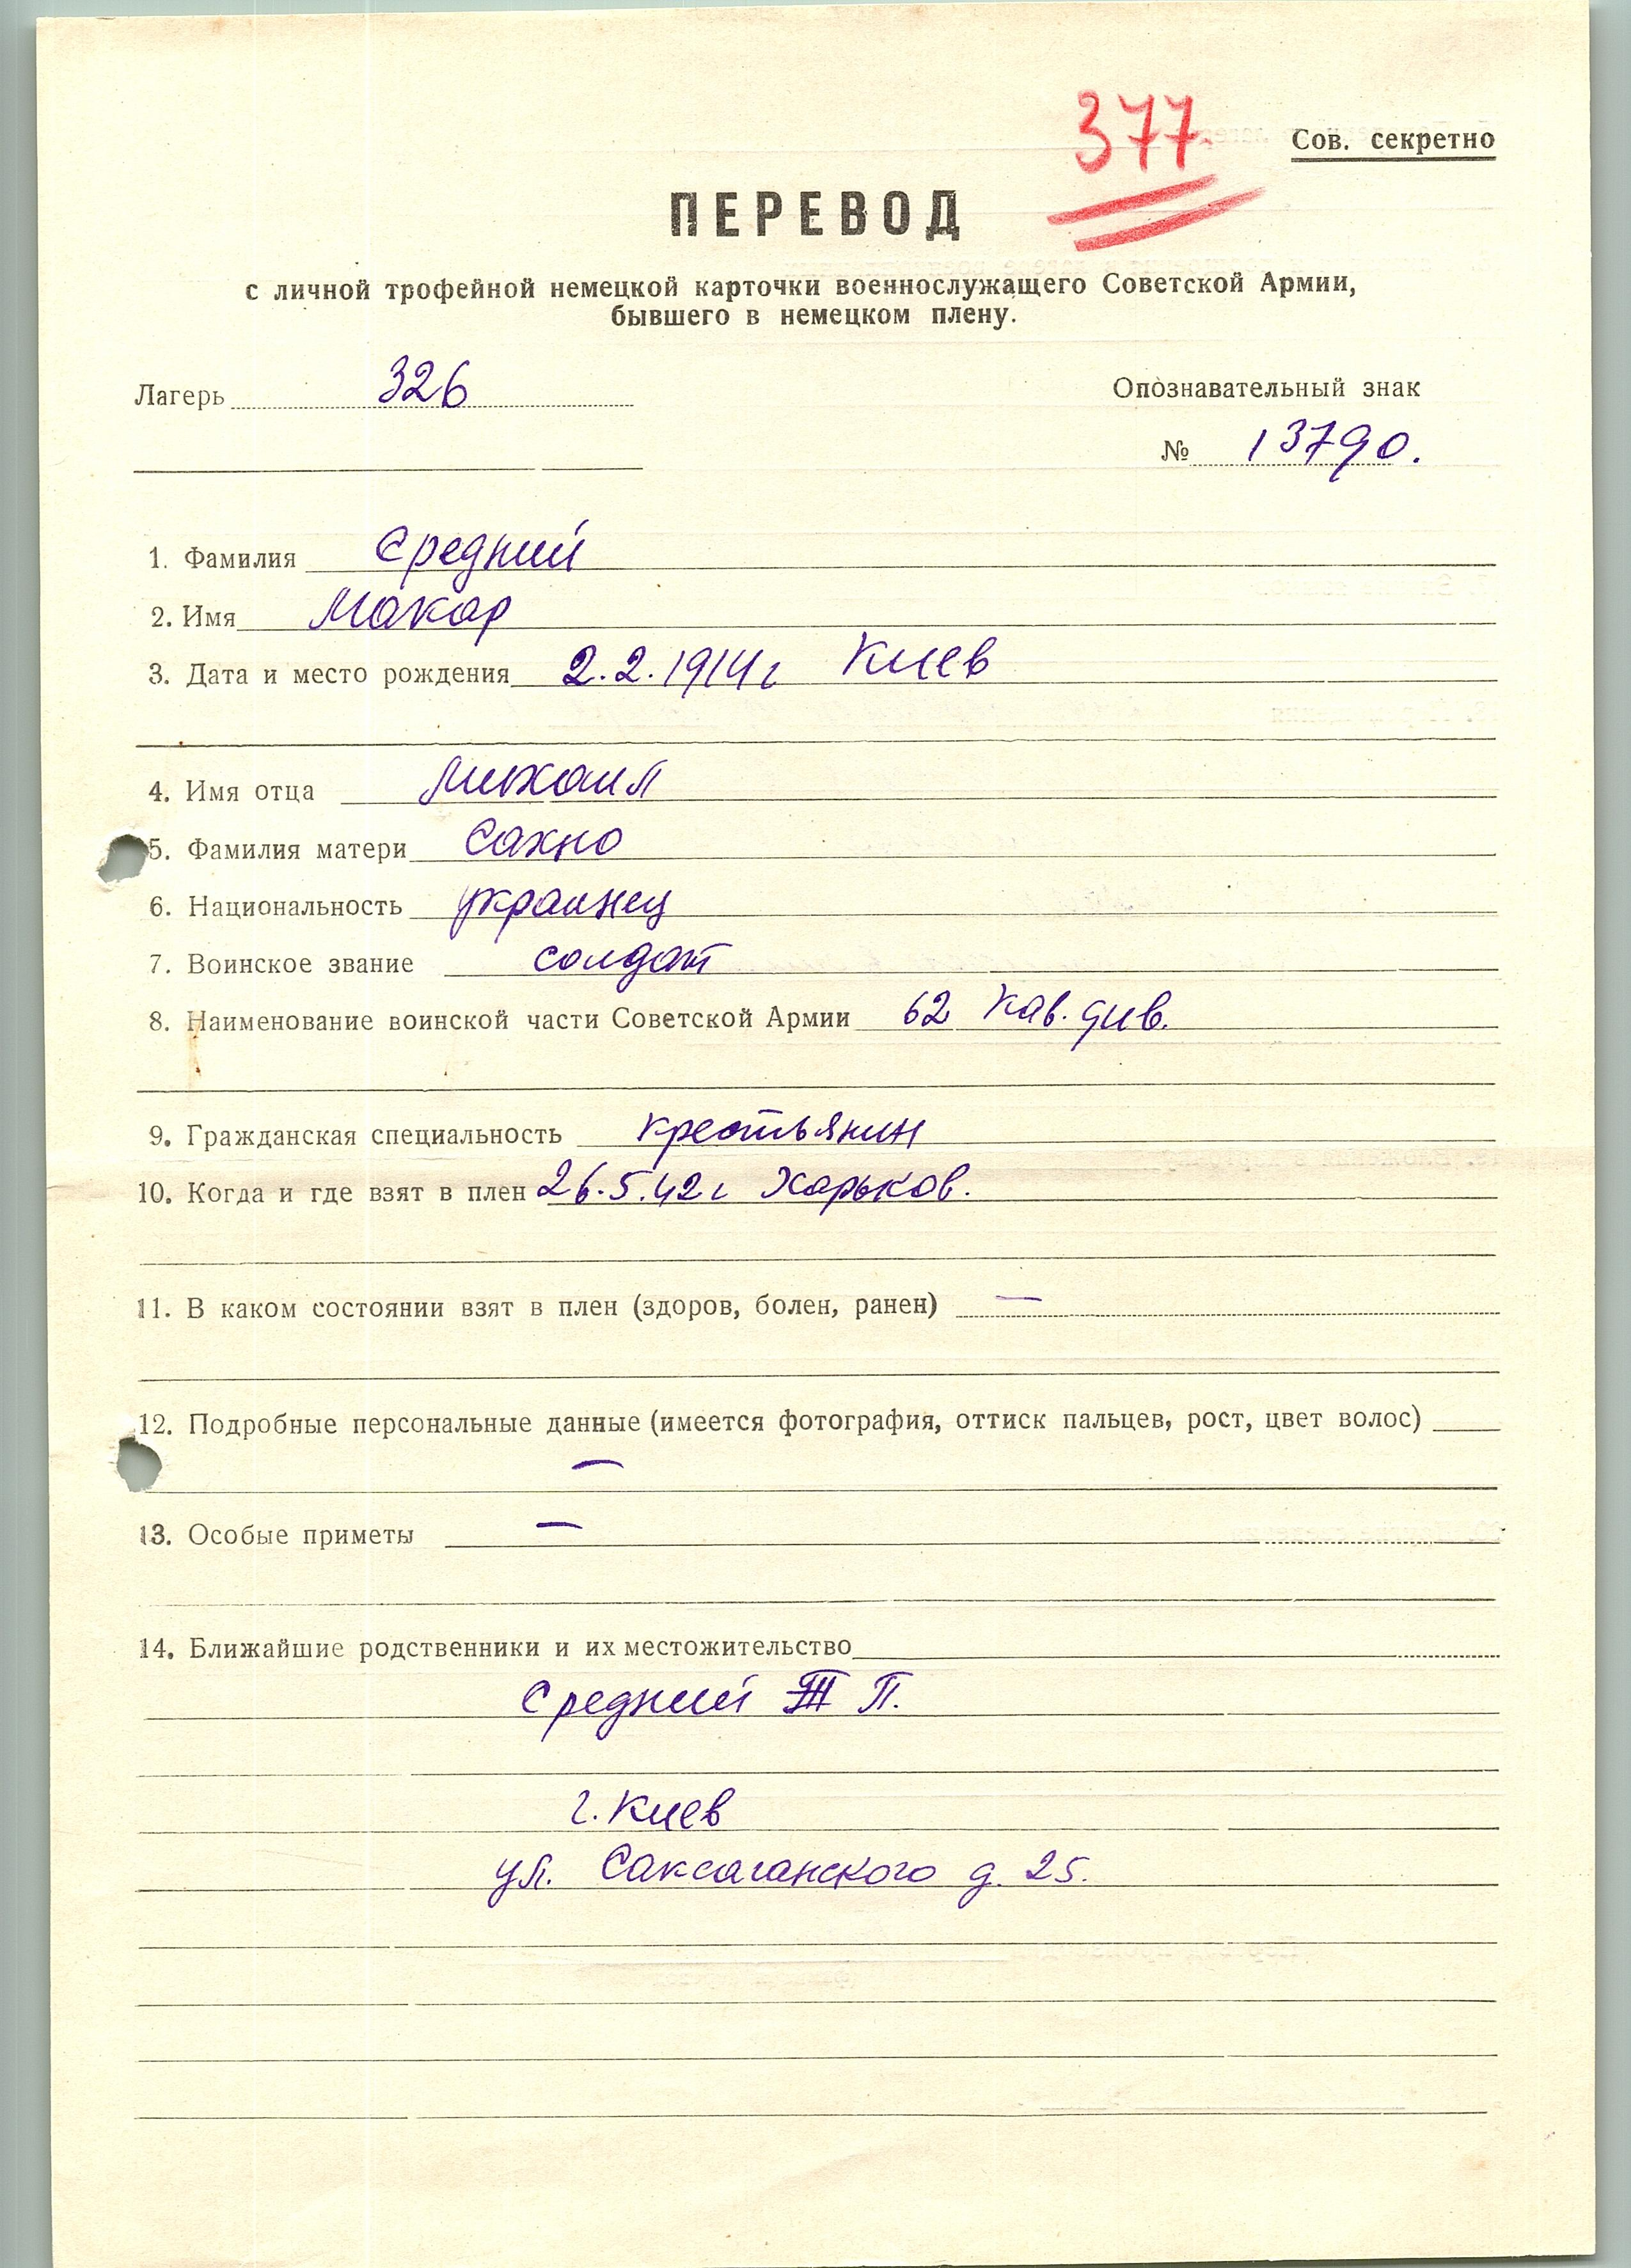 377
Сов. секретно
ПЕРЕВОД
с личной трофейной немецкой карточки военнослужащего Советской Армии,
бывшего в немецком плену.
Лагерь 326
Опознавательный знак
№ 13790.
1. Фамилия Средний
2. Имя Макар
3. Дата и место рождения 2.2.1914г Киев
4. Имя отца Михаил
5. Фамилия матери Сахно
6. Национальность украинец
7. Воинское звание солдат
8. Наименование воинской части Советской Армии 62 Кав. див.
9. Гражданская специальность крестьянин
10. Когда и где взят в плен 26.5.42г Харьков.
11. В каком состоянии взят в плен (здоров, болен, ранен) —
12. Подробные персональные данные (имеется фотография, оттиск пальцев, рост, цвет волос)
—
13. Особые приметы —
14. Ближайшие родственники и их местожительство
Средний П.
г. Киев
ул. Саксаганского д. 25.